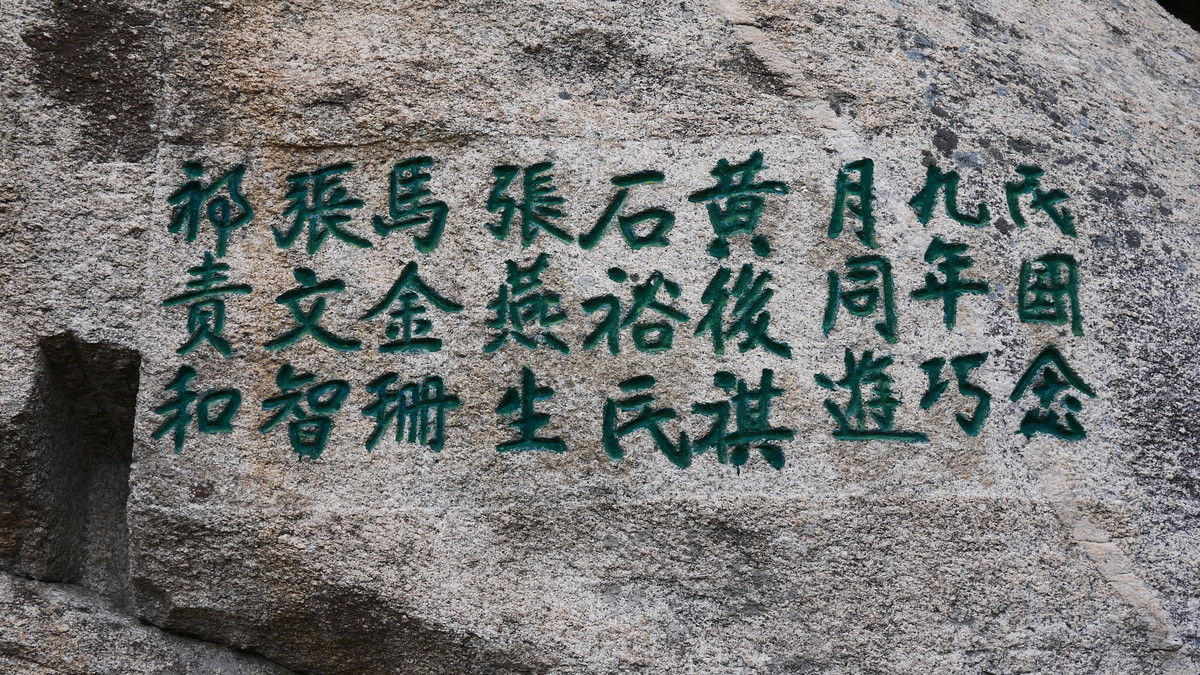 民國念
九年巧
月同遊
黃後祺
石裕民
張燕生
馬金珊
張文智
祁責和